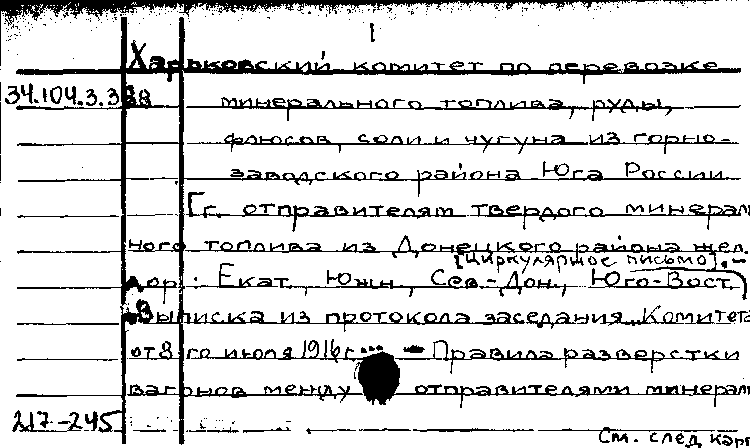 1
Харьковский комитет по перевозке
34.104.3.338
минерального топлива, руды,
флюсов, соли и чугуна из горно-
заводского района Юга России.
Гг. отправителям твердого минераль
ного топлива из Донецкого района жел.
[циркулярное письмо]. –
дор.: Екат., Южн., Сев.-Дон., Юго-Вост.
Выписка из протокола заседания Комитета
от 8го июля 1916 г... – Правила разверстки
вагонов между отправителями минерал
217-245
См. след карт